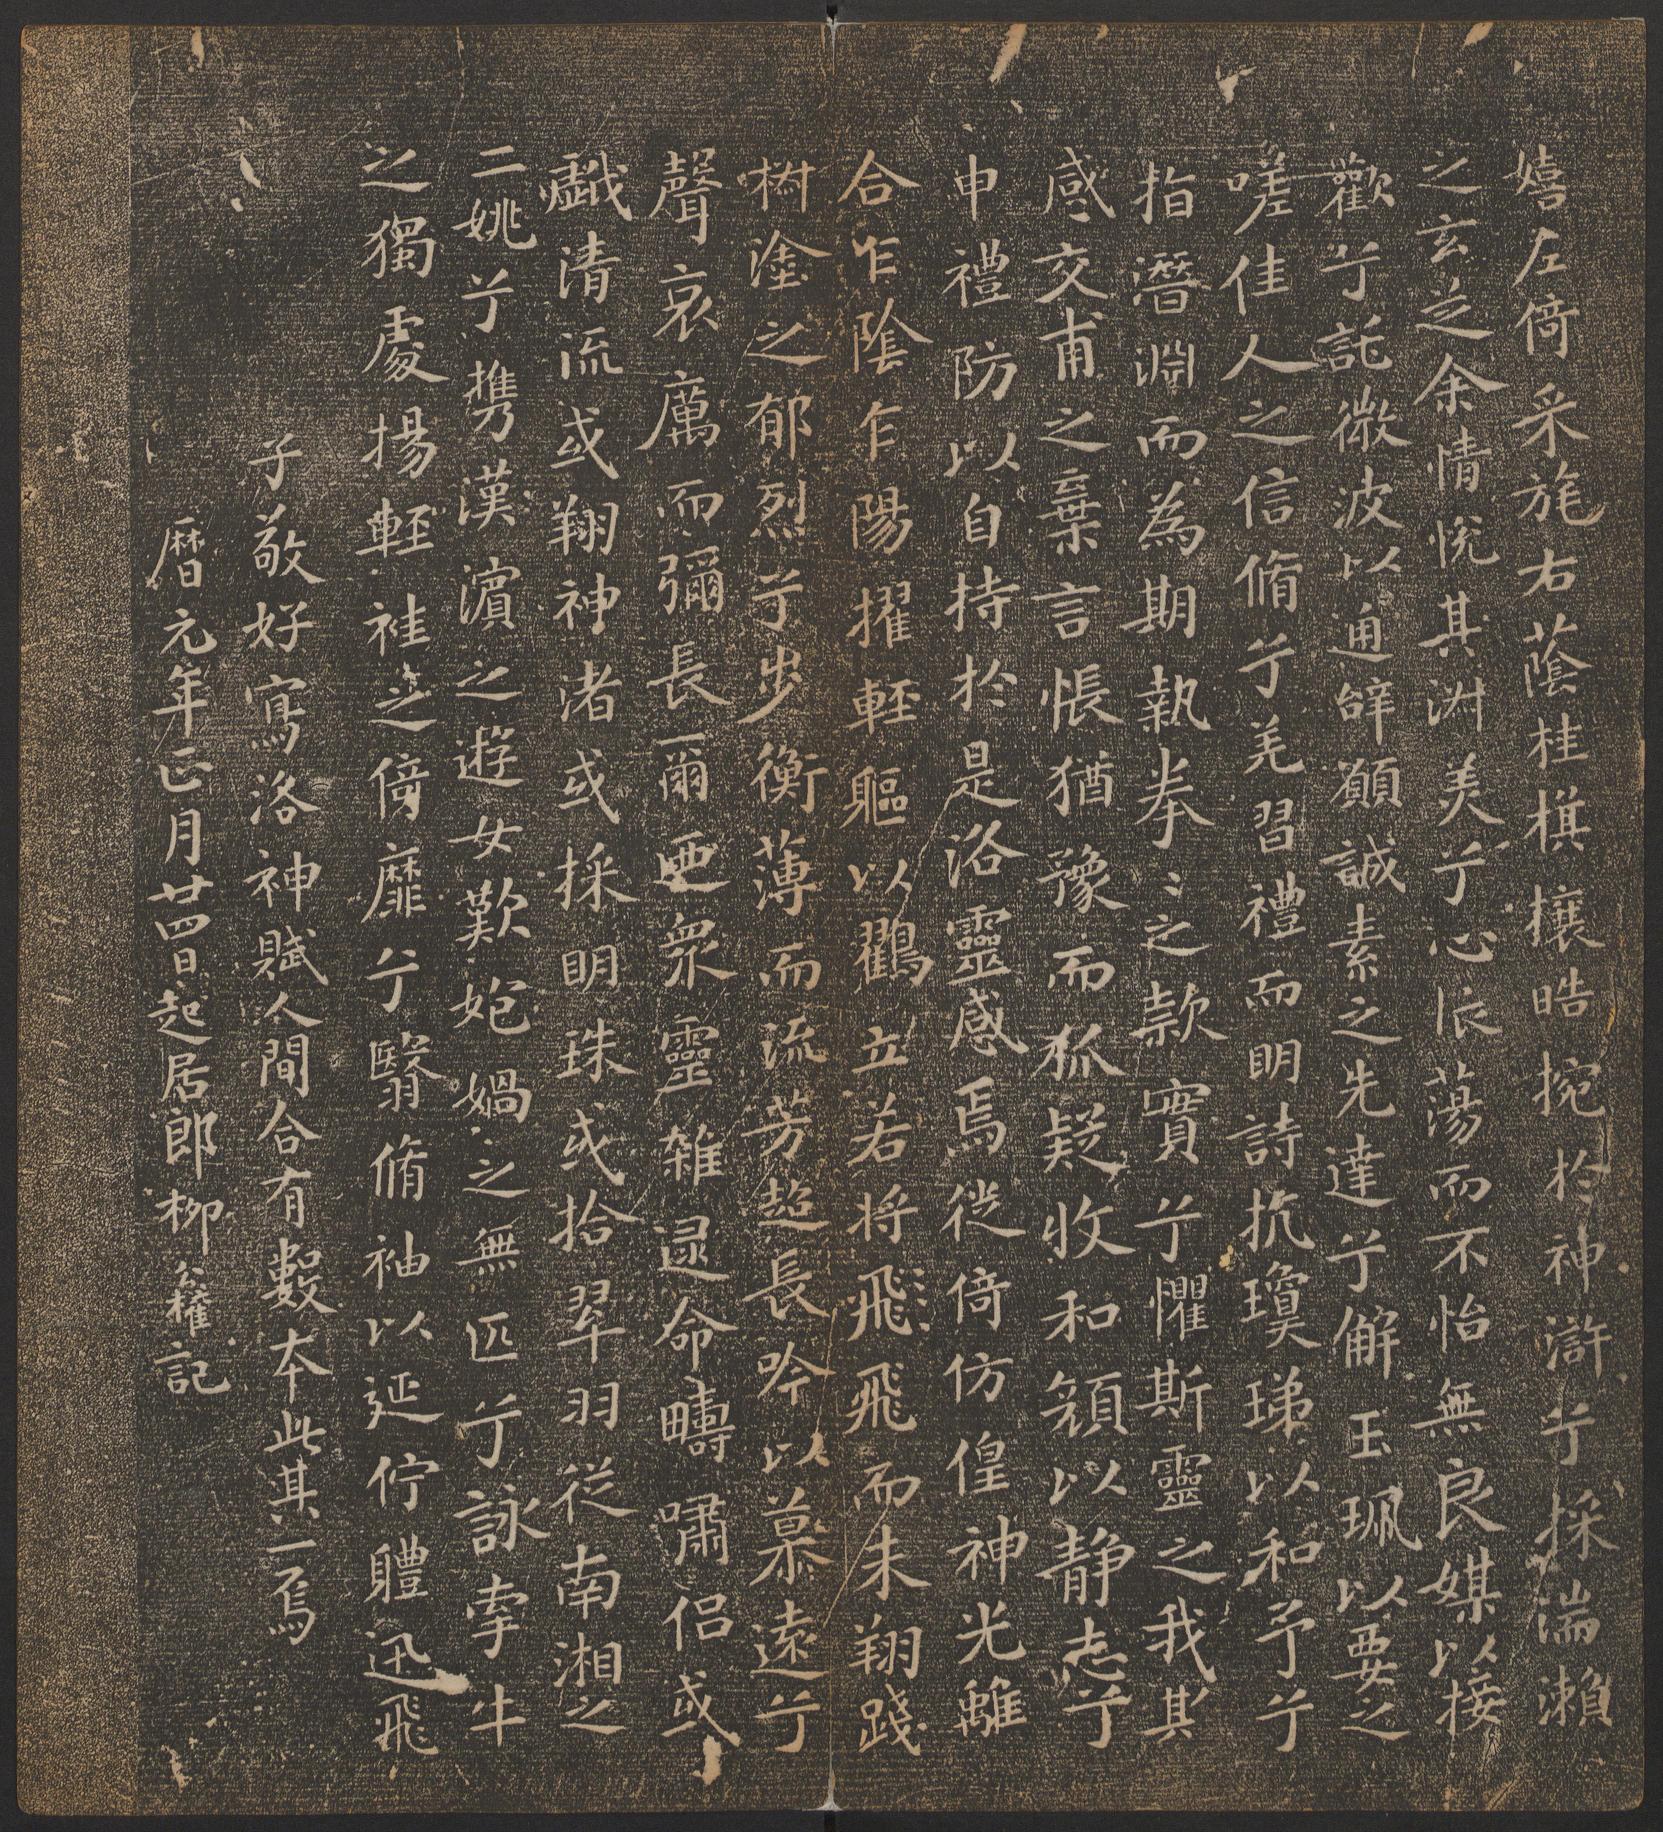 嬉左倚采旄右蔭桂棋攘皓捥於神滸兮採湍瀨
之玄芝余情悅其淑美兮心振蕩而不怡無良媒以接
歡兮託微波以通辝願誠素之先達兮解玉珮以要之
嗟佳人之信脩兮羌習禮而明詩抗瓊珶以和予兮
指潛淵而為期執拳〻之款實兮懼斯靈之我欺
感交甫之棄言悵猶豫而狐疑收和顏以靜志兮
申禮防以自持於是洛靈感焉徙倚仿偟神光離
合乍陰乍陽擢輕軀以鶴立若將飛飛而未翔踐
椒塗之郁烈兮步衡薄而流芳超長吟以慕遠兮
聲哀厲而彌長爾迺眾靈雜遝命疇嘯侶或
戲清流或翔神渚或採明珠或拾翠羽從南湘之
二姚兮攜漢濱之遊女歎炮媧之無匹兮詠牽牛
之獨處揚輕袿之倚靡兮翳脩袖以延佇軆迅飛
子敬好寫洛神賦人間合有數本此其一焉
曆元年正月廿四日起居郎柳公權記